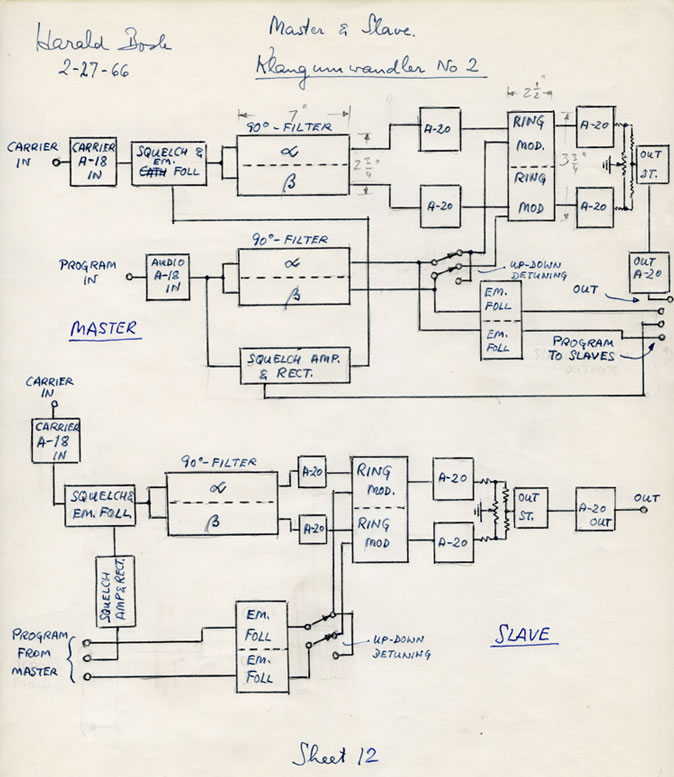 Harald Bode
2-27-66
Master & Slave.
Klangumwandler No 2
7"
2 1/2"
CARRIER
IN
CARRIER
A-18
IN
SQUELCH &
EM.
CATH FOLL
90°-FILTER
α
β
2 3/4"
A-20
A-20
RING
MOD.
RING
MOD
3 3/4"
A-20
A-20
OUT
ST.
PROGRAM
IN
AUDIO
A-18
IN
90°-FILTER
α
β
UP-DOWN
DETUNING
EM.
FOLL
EM.
FOLL
OUT
A-20
OUT
PROGRAM
TO SLAVES
MASTER
SQUELCH AMP.
& RECT.
CARRIER
IN
CARRIER
A-18
IN
SQUELCH &
EM. FOLL
90°-FILTER
α
β
A-20
A-20
RING
MOD.
RING
MOD
A-20
A-20
OUT
ST.
A-20
OUT
OUT
SQUELCH
AMP & RECT.
PROGRAM
FROM
MASTER
EM.
FOLL
EM.
FOLL
UP-DOWN
DETUNING
SLAVE
Sheet 12